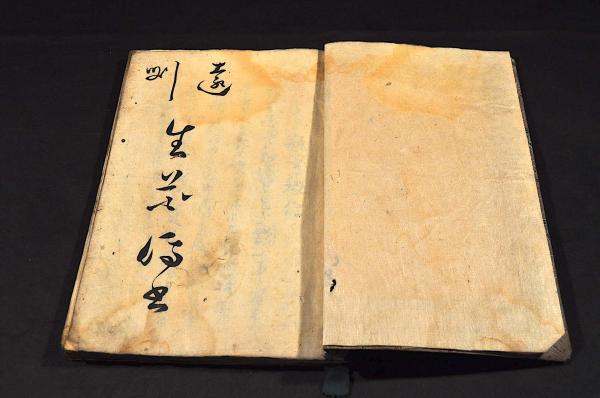 遠州
生花傳書